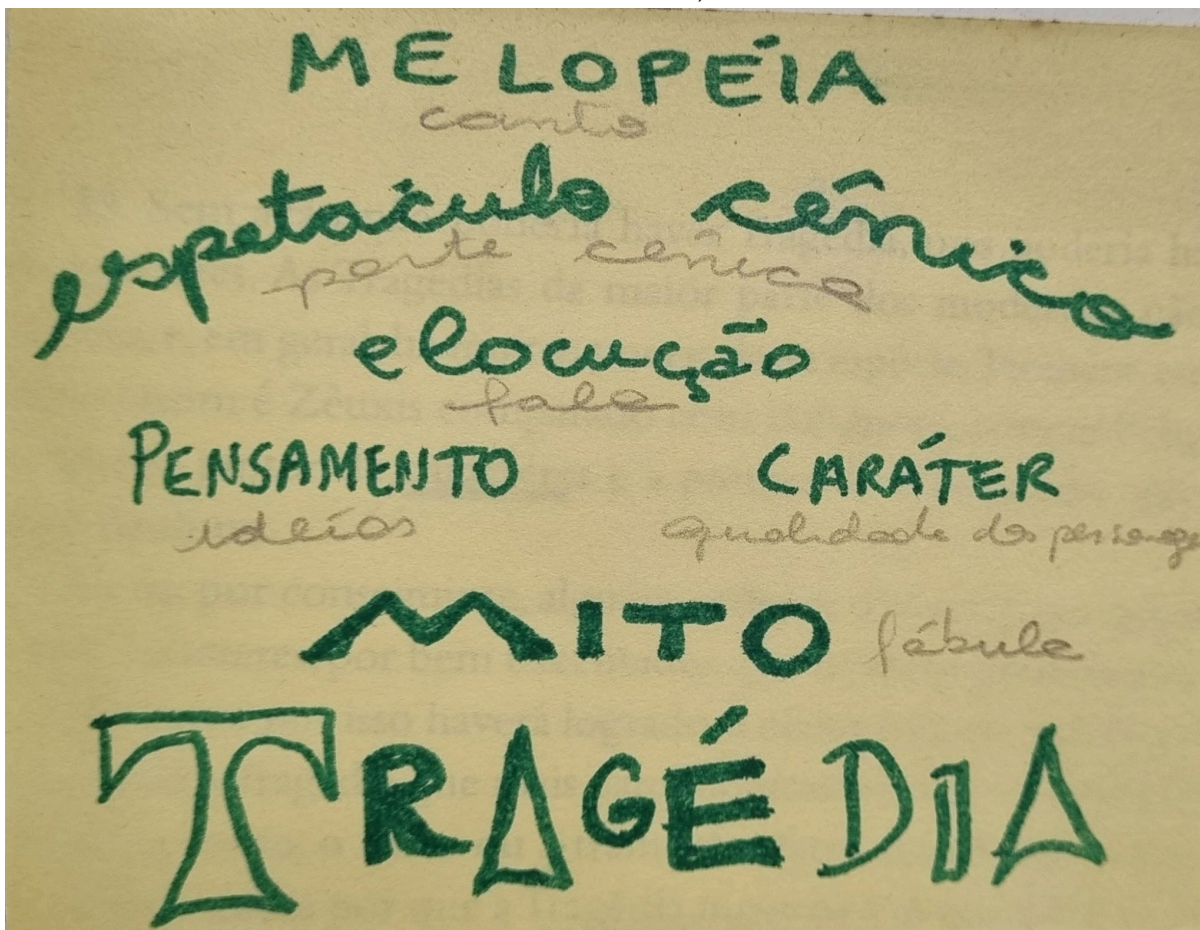 MELOPÉIA
canto
espetáculo cênico
parte cênica
elocução
fala
PENSAMENTO CARÁTER
ideias qualidade do personage
MITO fábula
TRAGÉDIA